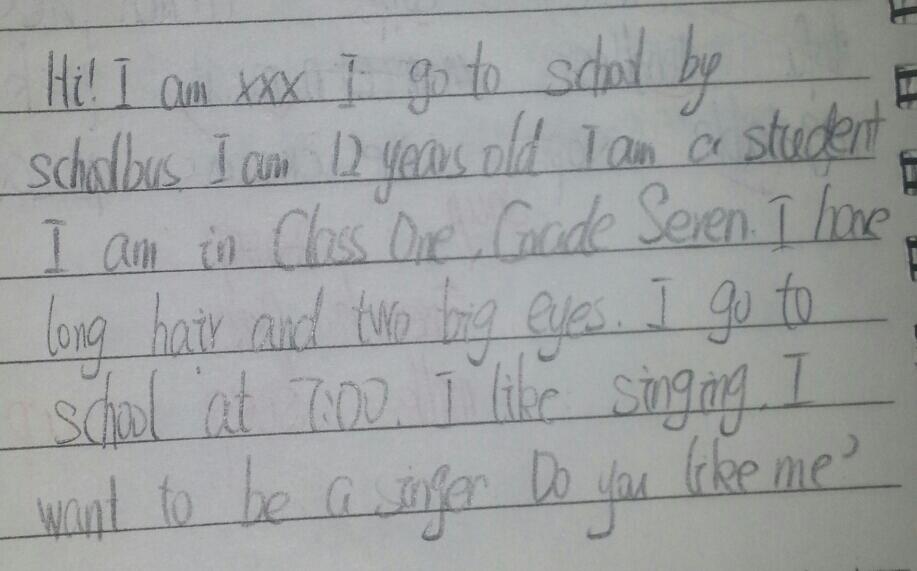 Hi! I am xxx I go to schol by
scholbus. I am 12 years old I am a student
I am in Class One, Grade Seven. I have
long hair and two big eyes. I go to
school at 7:00. I like singing. I
want to be a singer Do you like me?